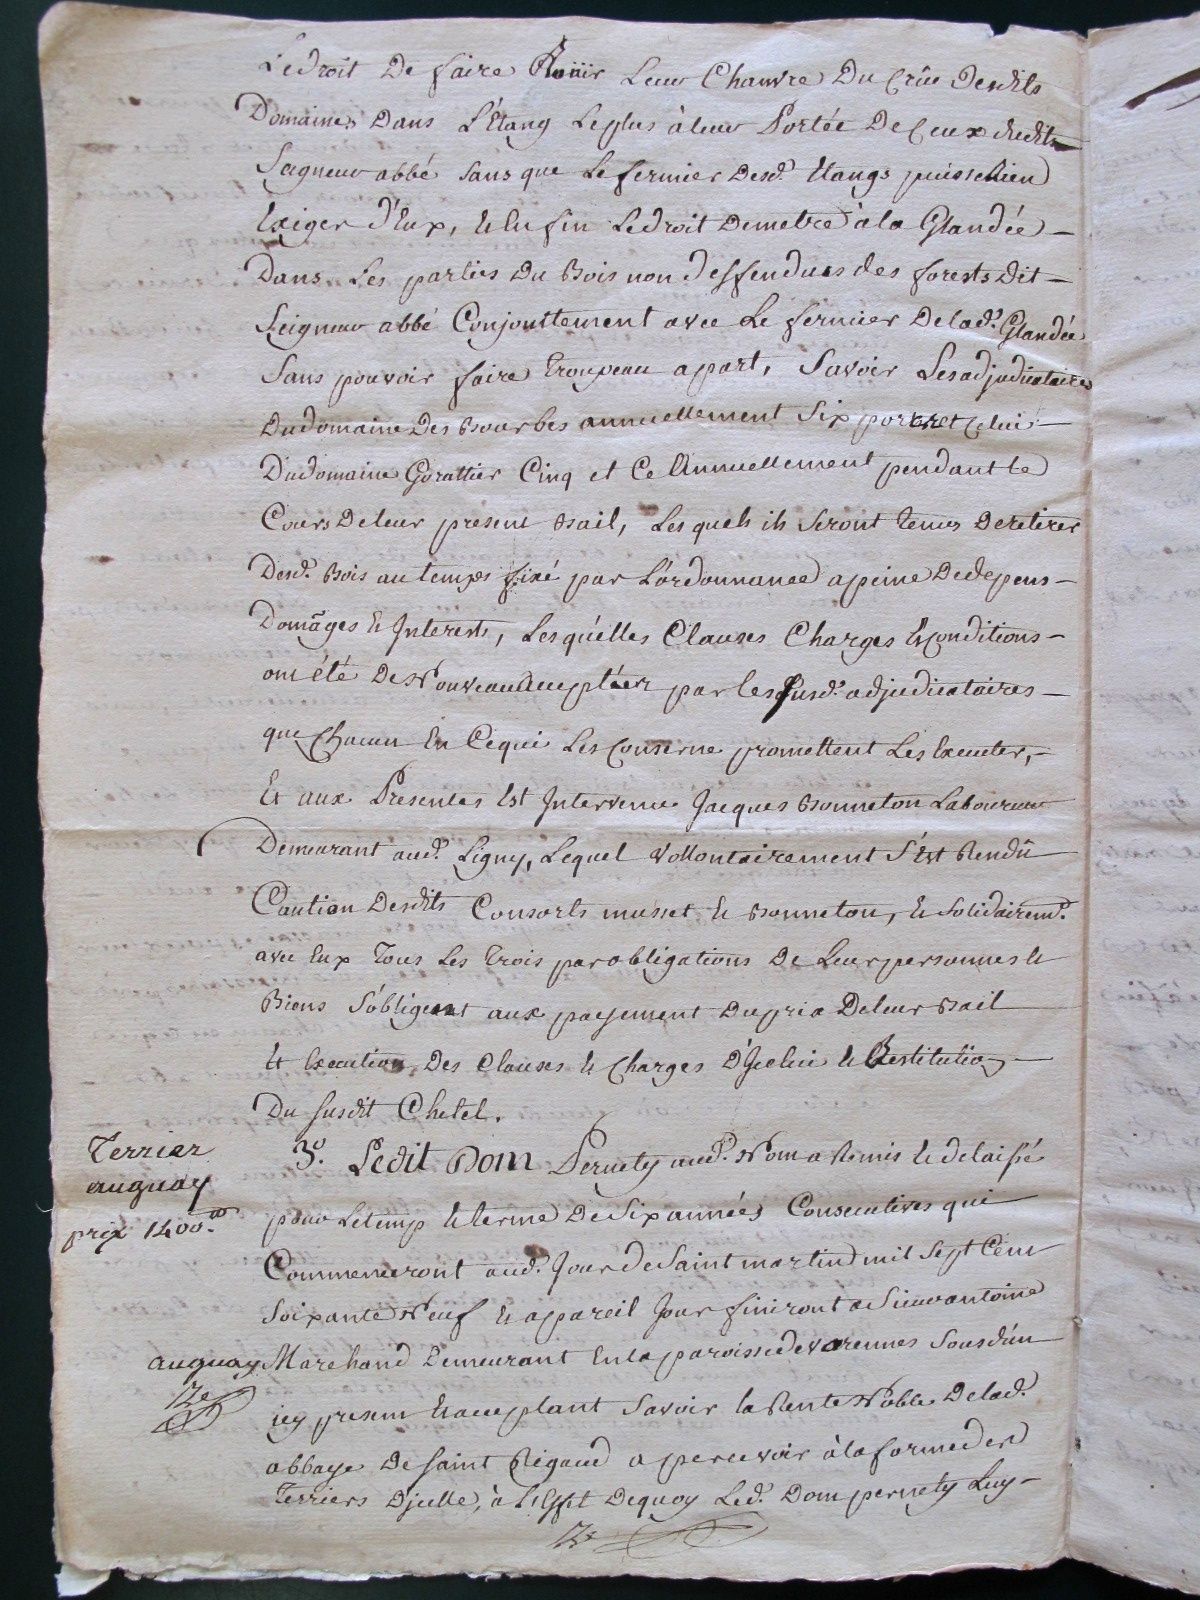 Le droit De faire Rouir Leur Chanvre Du Crûe Desdits
Domaines Dans L'Etang Le plus à leur Portée De Ceux dudit
Seigneur abbé sans que Le fermier Desd.s Etangs puisse Rien
Exiger d'Eux, Et Enfin Le droit De metre à la Glandée
Dans Les parties Du Bois non Deffendues des forests Dit
Seigneur abbé Conjouttement avec Le fermier De lad.e Glandée
Sans pouvoir faire Troupeau apart, Savoir Les adjudicataires
Du domaine Des Bourbes annuellement Six porcs et Celui
Du domaine Gorattier Cinq et Ce Annuellement pendant le
Cours De leur present Bail, Les quels ils Seront Tenus De retirer
Desd.s Bois au temps fixé par L'ordonnance a peine De depens
Domages Et Interests, Les quelles Clauses Charges Et Conditions
ont été De Nouveau Acceptées par les susd.s adjudicataires
que Chacun En Ce qui Les Conserne promettent Les Executer,
Et aux Presentes Est Intervenu Jacques Bonneton Laboureur
Demeurant aud.t Ligny, Lequel Vollontairement S'est Rendû
Caution Desdits Consorts musset Et Bonneton, Et Solidairem.t
avec Eux Tous Les Trois par obligations De Leur personnes Et
Biens S'obligent aux payement Du prix De leur Bail
Et Execution Des Clauses Et Charges D'Icelui Et Restitution
Du susdit Chetel.
Terrier
auguay
prix 1400.tt
3.o Ledit Dom Pernety aud.t Nom a Remis Et delaissé
pour Le temp Et terme De Six années Consecutives qui
Commenceront aud.t Jour De Saint martin mil Sept Cent
Soixante Neuf Et a pareil Jour finiront a Sieur antoine
auguay Marchand Demeurant En la paroisse de Varennes Sous dun
icy present Et acceptant Savoir la Rente Noble De lad.e
abbaye De Saint Rigaud a percevoir à la forme des
Terriers D'jcelle, à L'Effet De quoy Led.t Dom pernety Luy